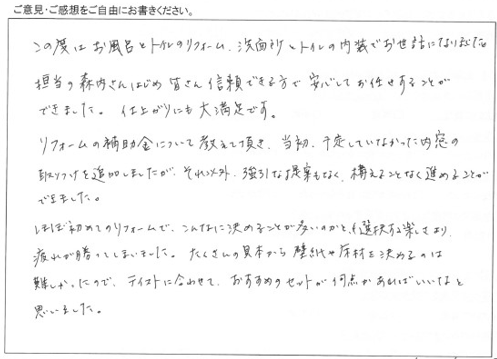 ご意見・ご感想をご自由にお書きください。
この度はお風呂とトイレのリフォーム、洗面所とトイレの内装でお世話になりました。
担当の森内さんはじめ皆さん信頼できる方で安心してお任せすることが
できました。仕上がりにも大満足です。
リフォームの補助金について教えて頂き、当初、予定していなかった内窓の
取りつけを追加しましたが、それ以外、強引な提案もなく、構えることなく進めることが
できました。
ほぼ初めてのリフォームで、こんなに決めることが多いのかと、選択する楽しさより、
疲れが勝ってしまいました。たくさんの見本から壁紙や床材を決めるのは
難しかったので、テイストに合わせて、おすすめのセットが何点かあればいいなと
思いました。